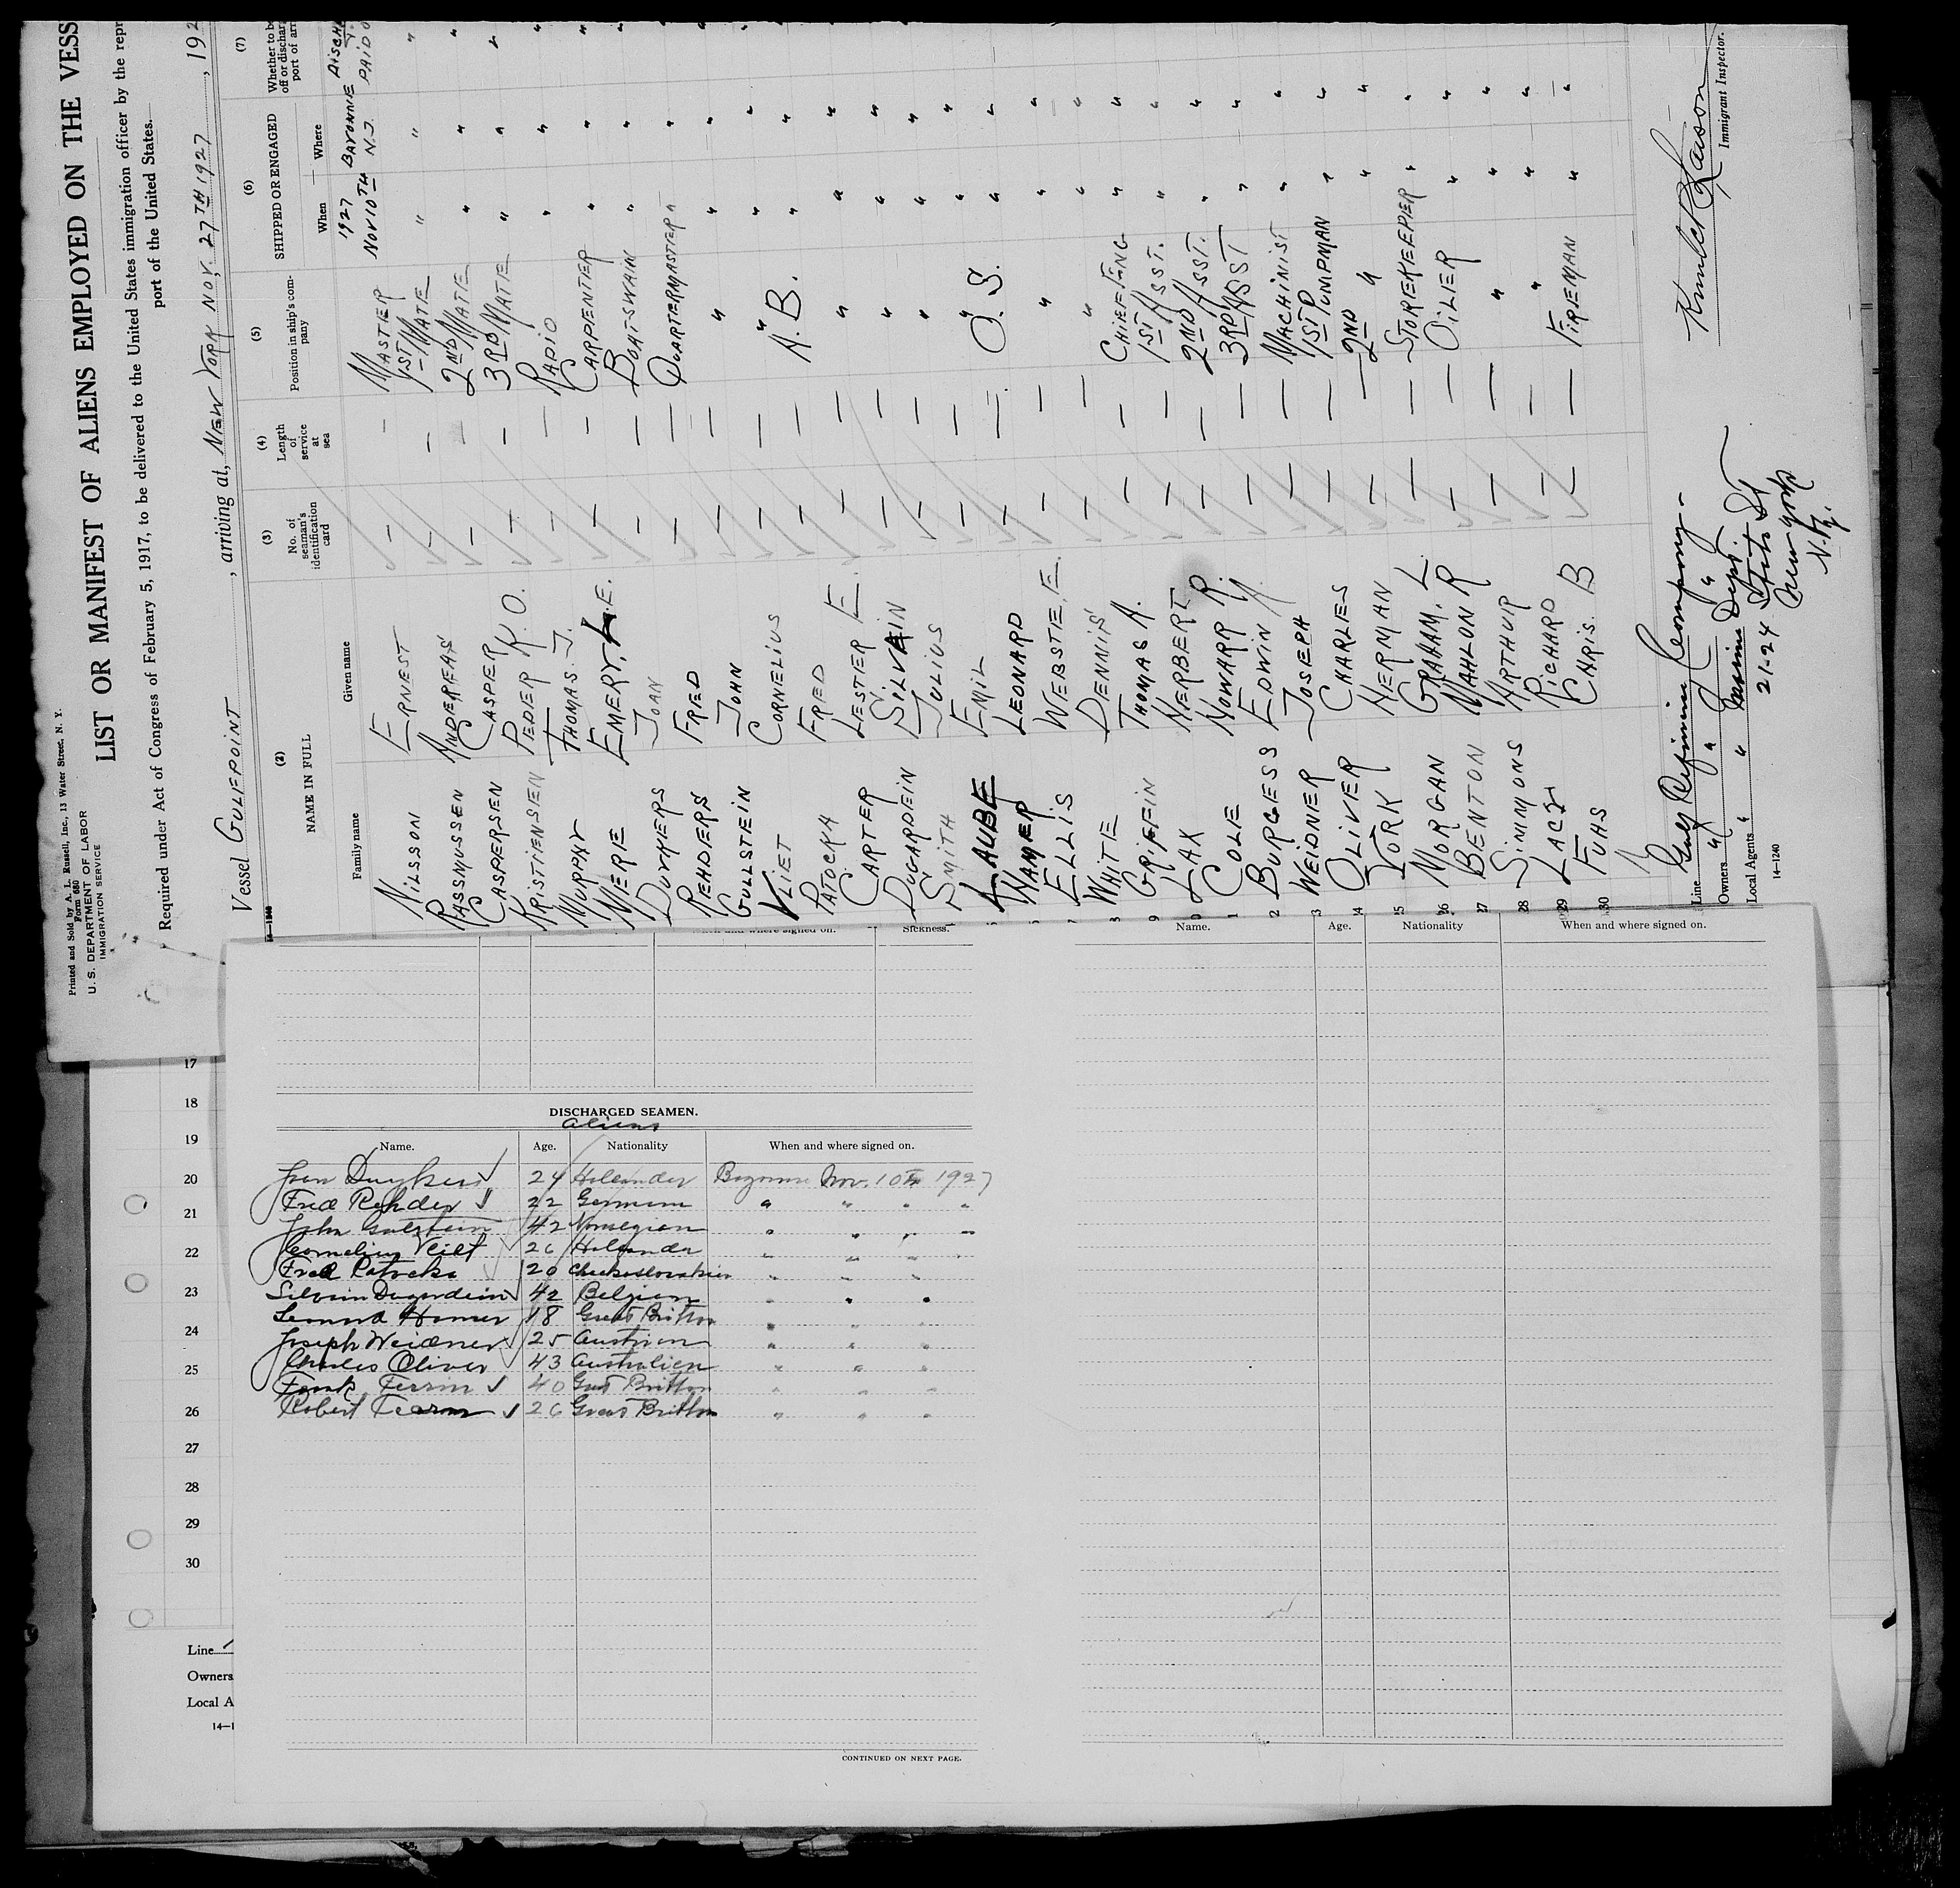 Printed and Sold by A. L. Russell, Inc., 13 Water Street, N. Y.
Form 680
U. S. DEPARTMENT OF LABOR
IMMIGRATION SERVICE
LIST OR MANIFEST OF ALIENS EMPLOYED ON THE VESS
Required under Act of Congress of February 5, 1917, to be delivered to the United States immigration officer by the repr
port of the United States.
Vessel GULFPOINT , arriving at, NEW YORK NOV. 27TH 1927 , 192
(2) (3) (4) (5) (6) (7)
NAME IN FULL
No. of seaman's identification card
Length of service at sea
Position in ship's company
SHIPPED OR ENGAGED
Whether to be
off or discharg
port of arr
Family name Given name When Where
1927 BAYONNE DISCH
NILSSON ERNEST — — MASTER NOV 10TH N.J. PAID O
RASMUSSEN ANDEREAS — — 1ST MATE " " "
CASPERSEN CASPER — — 2ND MATE " " "
KRISTIENSEN PEDER K.O. — — 3RD MATE " " "
MURPHY THOMAS. J. — — RADIO " " "
MERIE EMERY, L.E. — — CARPENTER " " "
DUYKERS JOAN — — BOATSWAIN " " "
REHDERS FRED — — QUARTERMASTER " " "
GULLSTEIN JOHN — — " " " "
VLIET CORNELIUS — — " " " "
PATOCKA FRED — — A.B. " " "
CARTER LESTER E. — — " " " "
DUGARDEIN SILVAIN — — " " " "
SMITH JULIUS — — " " " "
LAUBE EMIL — — " " " "
HAMER LEONARD — — O.S. " "
ELLIS WEBSTE, E. — — " " "
WHITE DENNIS — — " " "
8 GRIFFIN THOMAS A. — — CHIEF ENG " "
9 LAX HERBERT — — 1ST ASST. " "
0 COLE HOWARR R. — — 2ND ASST. " "
1 BURGESS EDWIN A. — — 3RD ASST " "
2 WEIDNER JOSEPH — — MACHINIST " "
3 OLIVER CHARLES — — 1ST PUMPMAN " "
24 YORK HERMAN — — 2ND " " "
25 MORGAN GRAHAM. L — — STOREKEEPER " "
26 BENTON MAHLON R — — OILER " "
27 SIMMONS ARTHUR — — " " "
28 LACZ RICHARD — — " " "
29 FUHS CHRIS. B — — FIREMAN " "
30
Line Gulf Refining Company.
Owners " " "
Local Agents " " Marine Dept.
21-24 State St
New York
N.Y.
14—1240
Immigrant Inspector.
when and where signed on. Sickness.
Name. Age. Nationality When and where signed on.
DISCHARGED SEAMEN.
Aliens
Name. Age. Nationality When and where signed on.
Joan Duykers 24 Hollander Bayonne Nov. 10th 1927
Fred Rehder 22 German " " " "
John Gulstein 42 Norwegian " " " "
Cornelius Vleit 26 Holander " " "
Fred Patocka 20 Checkoslovakien " " "
Silvain Dugardein 42 Belgien " " "
Leonard Hamer 18 Great Britton " " "
Joseph Weidner 25 Austrien " " "
Charles Oliver 43 Australien " " "
Frank 40 Great Britton " " "
Robert 26 Great Britton " " "
CONTINUED ON NEXT PAGE.
17
18
19
20
21
22
23
24
25
26
27
28
29
30
Line
Owners
Local A
14—1